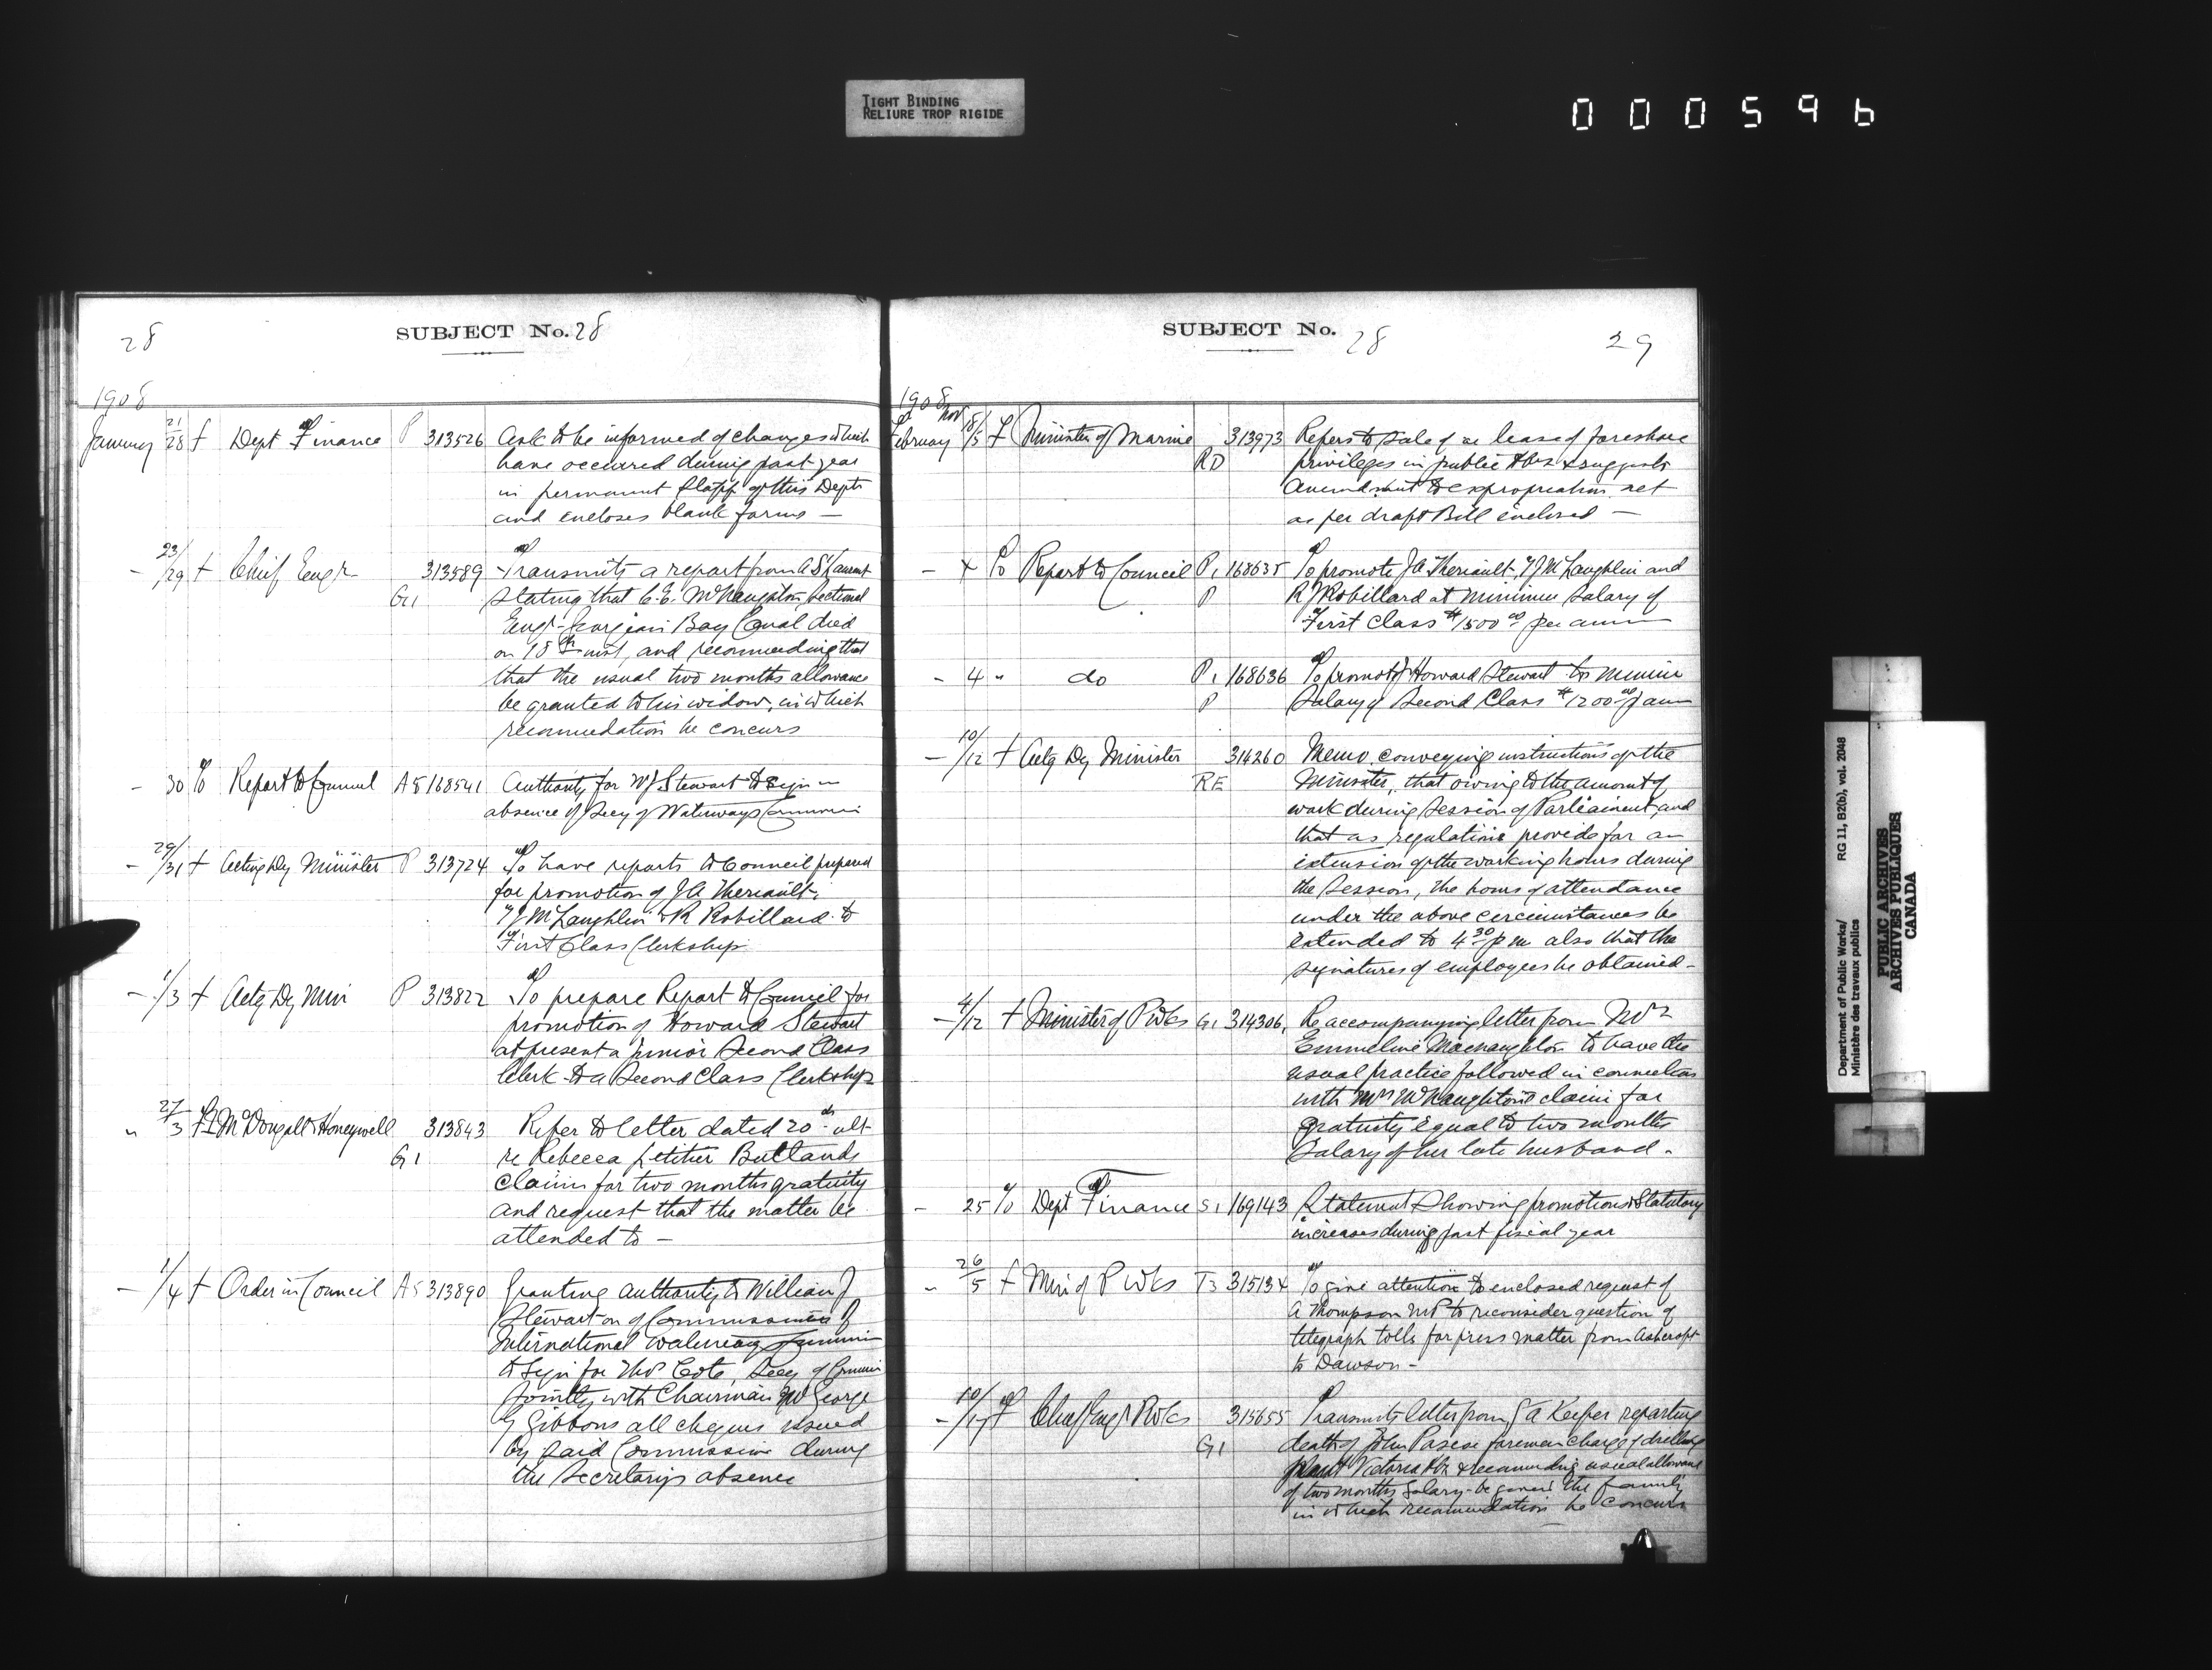 TIGHT BINDING
RELIURE TROP RIGIDE
000596
28
SUBJECT No. 28
1908
January 21/28 f Dept Finance P 313526 Ask to be informed of changes which
have occurred during past year
in permanent staff of this Dept
and encloses blank forms —
— 23/29 f Chief Engr 313589 Transmits a report from A St Laurent
G1 stating that C.E. McNaughton, Sectional
Engr Georgian Bay Canal died
on 18th inst, and recommending that
that the usual two months allowance
be granted to his widow, in which
recommendation he concurs
— 30 To Report to Council A5 168541 Authority for W J Stewart to sign in
absence of Secy of Waterways
— 29/31 f Acting Dy Minister P 313724 To have reports to Council prepared
for promotion of J A Theriault,
T J McLaughlin & R Robillard to
First Class Clerkship
— 1/3 f Actg Dy Min P 313822 To prepare Report to Council for
promotion of Howard Stewart
at present a junior Second Class
Clerk to a Second Class Clerkship
" 27/3 McDougall & Honeywell 313843 Refer to letter dated 20th ult
G1 re Rebecca Butlands
claim for two months gratuity
and request that the matter be
attended to —
— 1/4 f Order in Council A5 313890 Granting authority to William J
Stewart on of
International Waterway
to sign for Thos Coté, Secy of
jointly with Chairman Mr George
G Gibbons all cheques issued
by said Commission during
the Secretarys absence
SUBJECT No. 28
29
1908
February Nov 18/5 f Minister of Marine 313973 Refers to sale of or lease of foreshore
RD privileges in public Hbrs & suggests
Amendment to expropriation act
as per draft Bill enclosed —
— 4 To Report to Council P1 168635 To promote J A Theriault, T J McLaughlin and
P R J Robillard at minimum salary of
First Class $1500.00 per annum
— 4 " do P1 168636 To promote Howard Stewart to
P Salary of Second Class $1200.00 p ann
— 10/12 f Actg Dy Minister 314260 Memo conveying instructions of the
RE Minister, that owing to the amount of
work during Session of Parliament, and
that as regulations provide for an
extension of the working hours during
the Session, the hours of attendance
under the above circumstances be
extended to 4.30 p m also that the
signatures of employees be obtained —
— 4/12 f Minister of P Wks G1 314306 Re accompanying letter from
Emmeline Macnaughton to have the
usual practice followed in connection
with Mrs McNaughton's claim for
gratuity equal to two months
Salary of her late husband.
— 25 To Dept Finance S1 169143 Statement showing promotions & Statutory
increases during past fiscal year
" 26/5 f Min of P Wks T3 315134 To give attention to enclosed request of
A Thompson MP to reconsider question of
telegraph tolls for press matter from Ashcroft
to Dawson —
— 10/17 f Chief Engr P Wks 315655 Transmits letter from G A Keefer reporting
G1 death of John foreman charge of drilling
plant Victoria Hbr & recommending usual allowance
of two months Salary be given the family
in which recommendation he concurs
Department of Public Works/ RG 11, B2(b), vol. 2048
Ministère des travaux publics
PUBLIC ARCHIVES
ARCHIVES PUBLIQUES
CANADA